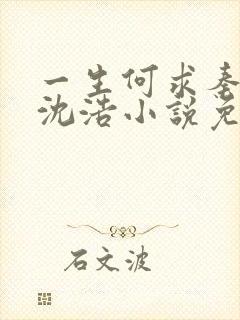 一生何求
沈浩小說免
石文波